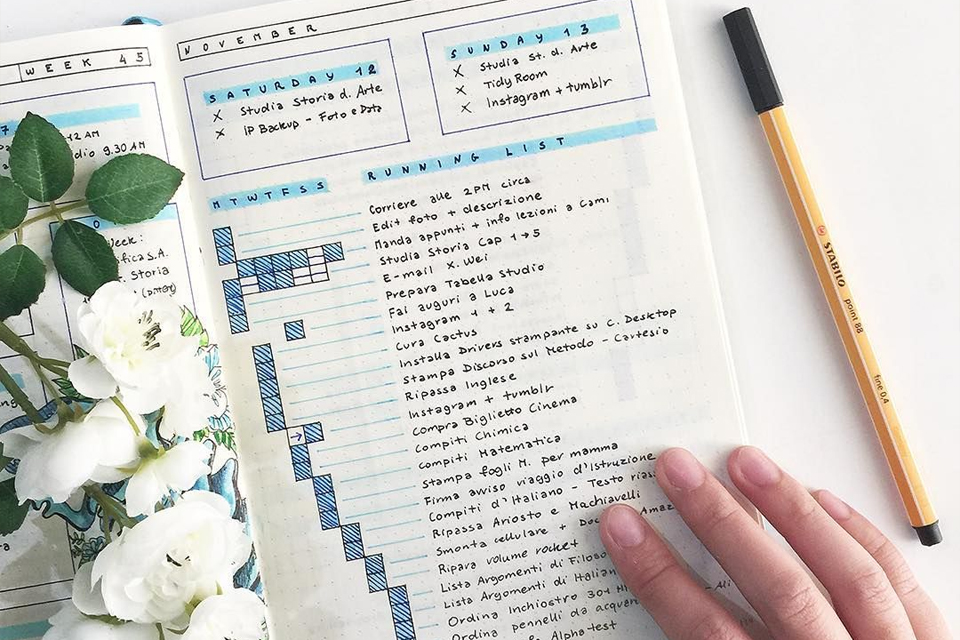 WEEK 45
7
12 AM
9.30 AM
Week:
S.A.
Storia
NOVEMBER
SATURDAY 12
X Studia Storia d. Arte
X IP Backup - Foto e Data
SUNDAY 13
X Studia St. d. Arte
X Tidy Room
X Instagram + tumblr
MTWTFSS
RUNNING LIST
Corriere alle 2PM circa
Edit foto + descrizione
Manda appunti + info lezioni a Cami
Studia Storia Cap 1→5
E-mail X. Wei
Prepara Tabella Studio
Fai auguri a Luca
Instagram 1 + 2
Cura Cactus
Installa Drivers stampante su C. Desktop
Stampa Discorso sul Metodo - Cartesio
Ripassa Inglese
Instagram + tumblr
Compra Biglietto Cinema
Compiti Chimica
Compiti Matematica
Stampa fogli M. per mamma
Firma avviso viaggio d'Istruzione
Compiti d'Italiano - Testo
Ripassa Ariosto e Machiavelli
Smonta cellulare +
Ripara volume rocket
Lista Argomenti di
Lista Argomenti di
Ordina Inchiostro 301
Ordina pennelli da
Alphatest
STABILO point 88 fine 0,4